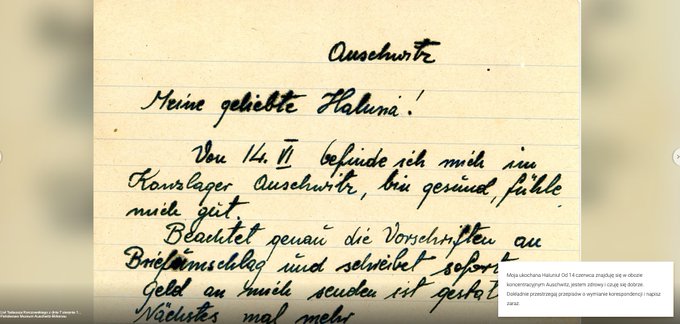 Auschwitz
Meine geliebte Halusia!
Von 14. VI befinde ich mich im
Konzlager Auschwitz, bin gesund, fühle
mich gut.
Beachtet genau die Vorschriften an
Briefumschlag und schreibet sofort
Geld an mich senden ist gestat
Nächstes mal mehr
Moja ukochana Haluniu! Od 14 czerwca znajduję się w obozie
koncentracyjnym Auschwitz, jestem zdrowy i czuję się dobrze.
Dokładnie przestrzegaj przepisów o wymianie korespondencji i napisz
zaraz.